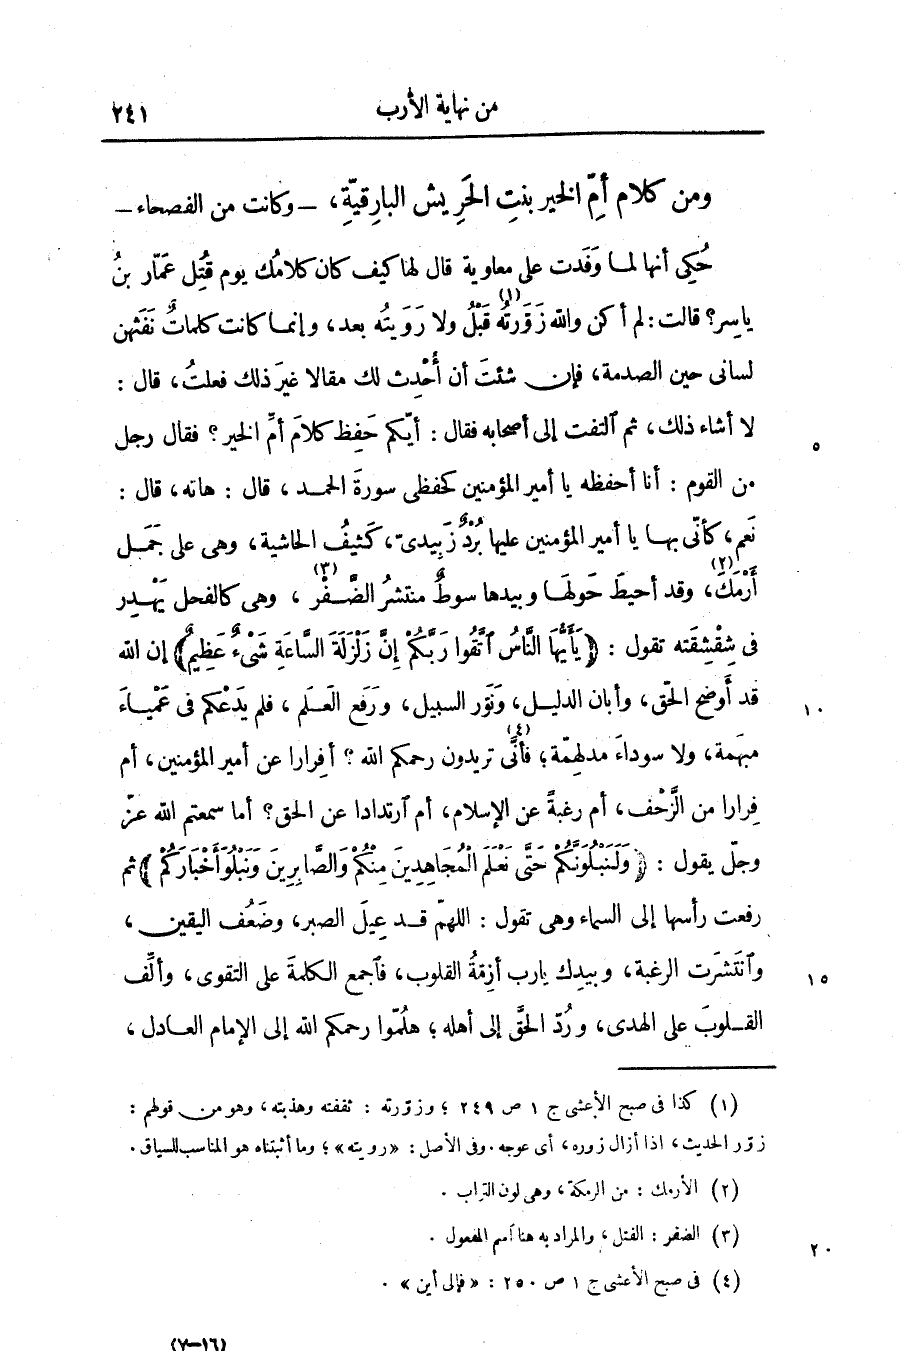 من نهاية الأرب ٢٤١
ومن كلام أمِّ الخير بنتِ الحَرِيش البارِقيّةِ، — وكانت من الفصحاء —
حُكِى أنها لما وَفَدت على معاوية قال لها كيف كان كلامُك يوم قُتِل عَمّار بنُ
ياسِر؟ قالت: لم أكن والله زَوّرتُه (١) قَبْلُ ولا رَوَيتُه بعد، وإنما كانت كلماتٌ نَفَثهن
لسانى حين الصدمة، فإن شئتَ أن أُحْدِث لك مقالا غيرَ ذلك فعلتُ، قال :
لا أشاء ذلك، ثم ٱلتفت إلى أصحابه فقال : أيّكم حَفِظ كلامَ أمِّ الخير؟ فقال رجل
٥
من القوم : أنا أحفظه يا أمير المؤمنين كحفظى سورةَ الحمد، قال : هاته، قال :
نَعم، كأنّى بها يا أمير المؤمنين عليها بُرْدٌ زَبِيدىّ، كَثيفُ الحاشية، وهى على جَمَل
أَرْمَكَ (٢)، وقد أحيطَ حَولهَا وبيدها سوطٌ منتشرُ الضَّفْر (٣)، وهى كالفحل يَهْدِر
فى شِقْشِقَته تقول : ﴿يَأَيُّهَا النَّاسُ ٱتَّقُوا رَبَّكُمْ إِنَّ زَلْزَلَةَ السَّاعَةِ شَىْءٌ عَظِيمٌ﴾ إن الله
قد أَوضح الحقّ، وأبان الدليل، وَنَوّر السبيل، ورَفَع العَلَم، فلم يَدَعْكم فى عَمْياءَ
١٠
مبهَمة، ولا سوداءَ مدلهِمّة؛ فأنَّى (٤) تريدون رحمكم الله؟ أفِرارا عن أمير المؤمنين، أم
فِرارا من الزَّحْف، أم رغبةً عن الإسلام، أم ٱرتدادا عن الحق؟ أما سمعتم الله عزّ
وجلّ يقول : ﴿وَلَنَبْلُوَنَّكُمْ حَتَّى نَعْلَمَ الْمُجَاهِدِينَ مِنْكُمْ وَالصَّابِرِينَ وَنَبْلُوَ أَخْبَارَكُمْ﴾ ثم
رفعت رأسها إلى السماء وهى تقول : اللهمّ قد عِيلَ الصبر، وضَعُف اليقين،
وٱنتَشرَت الرغبة، وبيدِك يارب أزِمّةُ القلوب، فٱجمع الكلمةَ على التقوى، وألِّف
١٥
القلوبَ على الهدى، ورُدّ الحقَّ إلى أهله؛ هلُمّوا رحمكم الله إلى الإمام العادل،
(١) كذا فى صبح الأعشى ج ١ ص ٢٤٩؛ وزوّرته : ثقفته وهذبته، وهو من قولهم :
زوّر الحديث، اذا أزال زوره، أى عوجه. وفى الأصل : «رويته»؛ وما أثبتناه هو المناسب للسياق.
(٢) الأرمك : من الرمكة، وهى لون التراب.
(٣) الضفر : الفتل، والمراد به هنا ٱسم المفعول.
٢٠
(٤) فى صبح الأعشى ج ١ ص ٢٥٠ : «فإلى أين».
(١٦—٧)